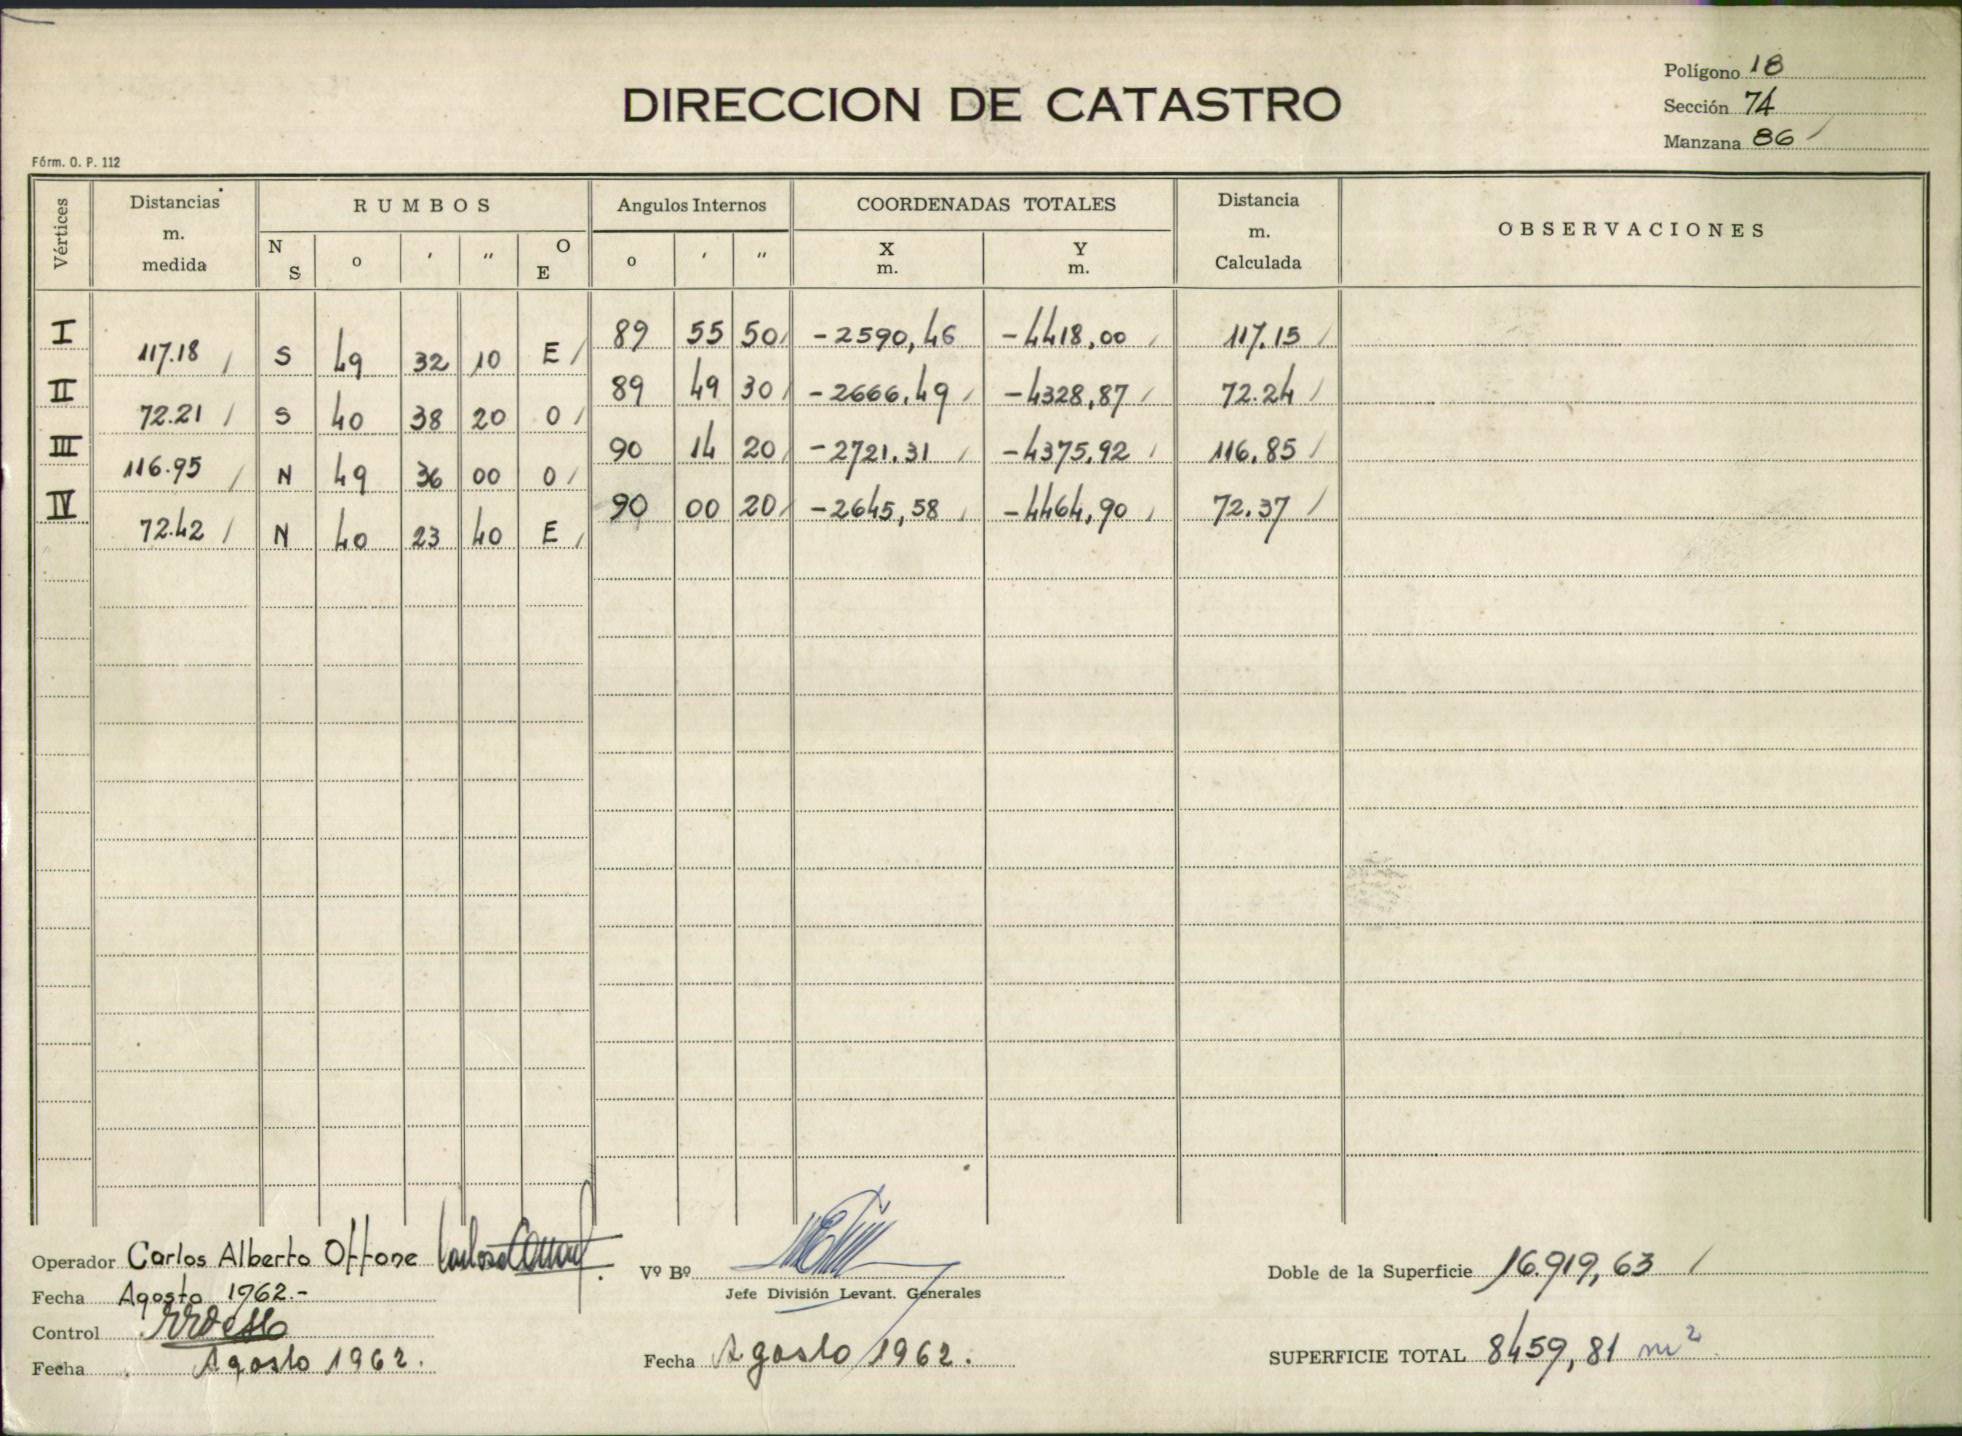 Polígono 18
DIRECCION DE CATASTRO
Sección 74
Manzana 86
Fórm. O. P. 112
Vértices
Distancias m. medida
RUMBOS
Angulos Internos
COORDENADAS TOTALES
Distancia m. Calculada
OBSERVACIONES
N S o ' " O E o ' " X m. Y m.
I 89 55 50 -2590,46 -4418,00 117.15
117.18 S 49 32 10 E
II 89 49 30 -2666,49 -4328,87 72.24
72.21 S 40 38 20 O
III 90 14 20 -2721.31 -4375,92 116,85
116.95 N 49 36 00 O
IV 90 00 20 -2645,58 -4464,90 72.37
72.42 N 40 23 40 E
Operador Carlos Alberto Offone
Vº Bº
Doble de la Superficie 16.919,63
Fecha Agosto 1962.-
Jefe División Levant. Generales
Control
Fecha Agosto 1962.
Fecha Agosto 1962.
SUPERFICIE TOTAL 8459,81 m²